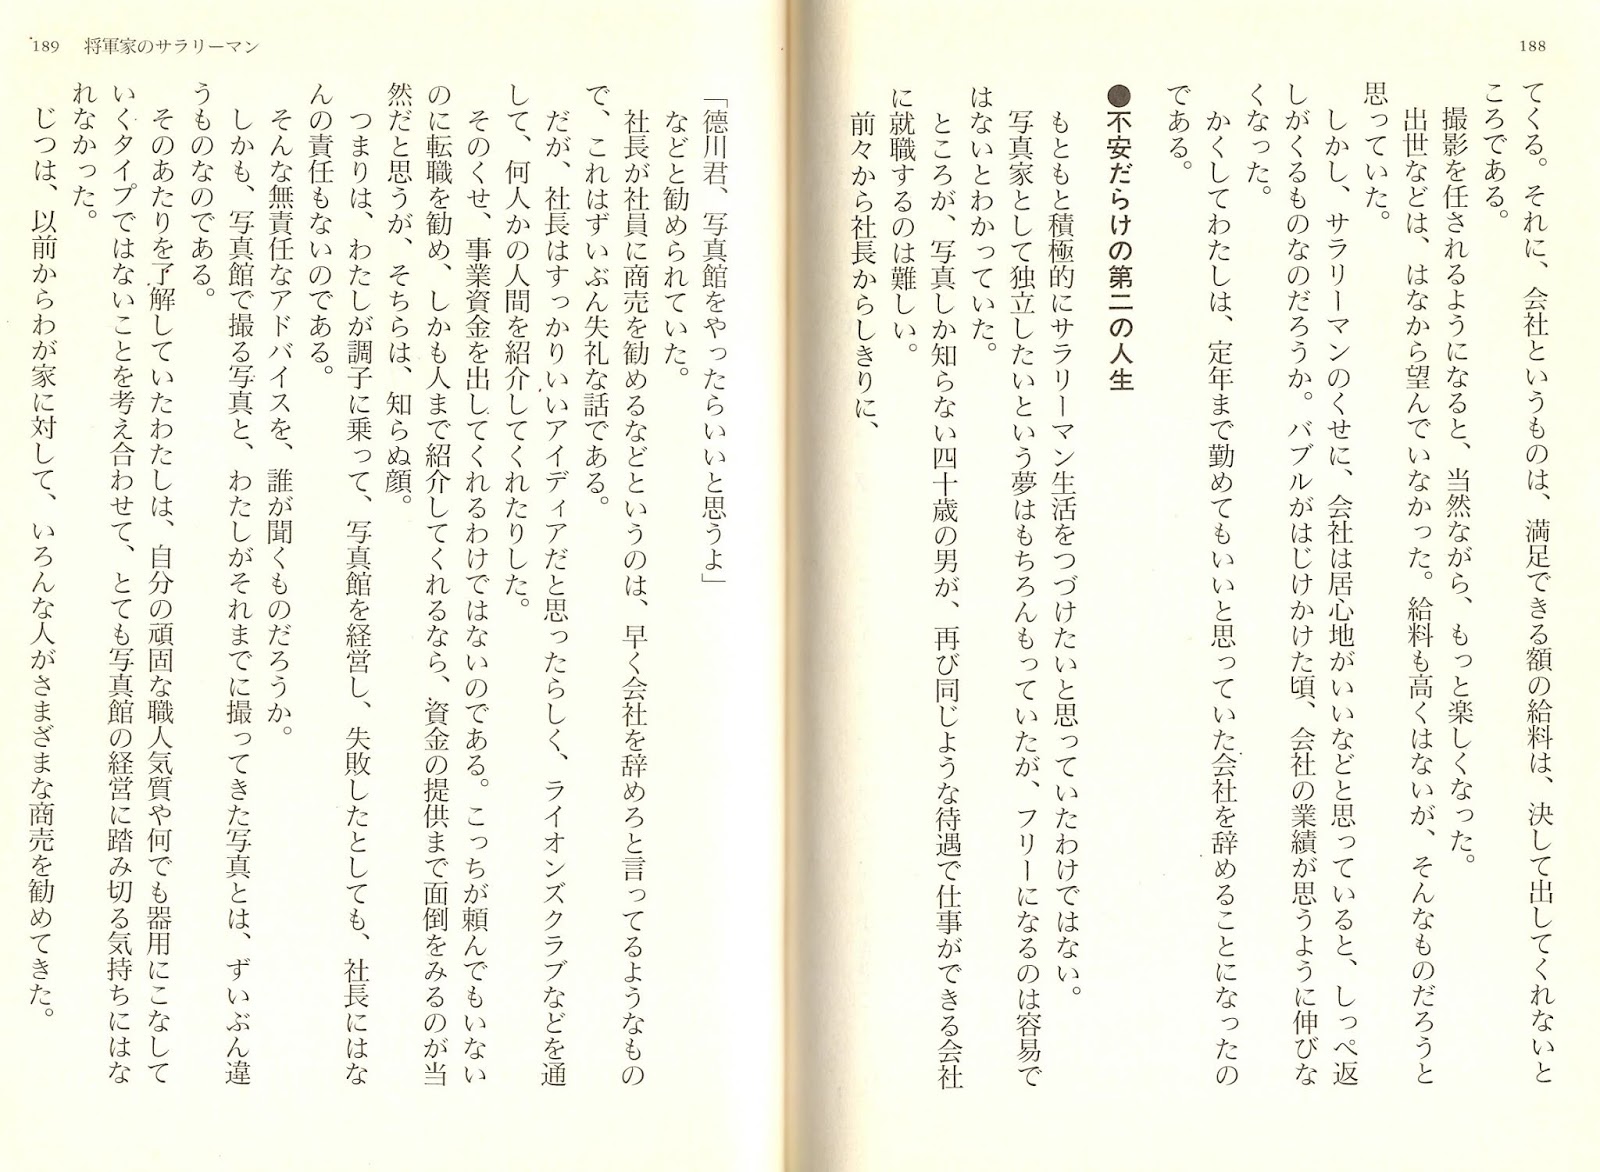 188
てくる。それに、会社というものは、満足できる額の給料は、決して出してくれないと
ころである。
撮影を任されるようになると、当然ながら、もっと楽しくなった。
出世などは、はなから望んでいなかった。給料も高くはないが、そんなものだろうと
思っていた。
しかし、サラリーマンのくせに、会社は居心地がいいなどと思っていると、しっぺ返
しがくるものなのだろうか。バブルがはじけかけた頃、会社の業績が思うように伸びな
くなった。
かくしてわたしは、定年まで勤めてもいいと思っていた会社を辞めることになったの
である。
●不安だらけの第二の人生
もともと積極的にサラリーマン生活をつづけたいと思っていたわけではない。
写真家として独立したいという夢はもちろんもっていたが、フリーになるのは容易で
はないとわかっていた。
ところが、写真しか知らない四十歳の男が、再び同じような待遇で仕事ができる会社
に就職するのは難しい。
前々から社長からしきりに、
189 将軍家のサラリーマン
「徳川君、写真館をやったらいいと思うよ」
などと勧められていた。
社長が社員に商売を勧めるなどというのは、早く会社を辞めろと言ってるようなもの
で、これはずいぶん失礼な話である。
だが、社長はすっかりいいアイディアだと思ったらしく、ライオンズクラブなどを通
して、何人かの人間を紹介してくれたりした。
そのくせ、事業資金を出してくれるわけではないのである。こっちが頼んでもいない
のに転職を勧め、しかも人まで紹介してくれるなら、資金の提供まで面倒をみるのが当
然だと思うが、そちらは、知らぬ顔。
つまりは、わたしが調子に乗って、写真館を経営し、失敗したとしても、社長にはな
んの責任もないのである。
そんな無責任なアドバイスを、誰が聞くものだろうか。
しかも、写真館で撮る写真と、わたしがそれまでに撮ってきた写真とは、ずいぶん違
うものなのである。
そのあたりを了解していたわたしは、自分の頑固な職人気質や何でも器用にこなして
いくタイプではないことを考え合わせて、とても写真館の経営に踏み切る気持ちにはな
れなかった。
じつは、以前からわが家に対して、いろんな人がさまざまな商売を勧めてきた。